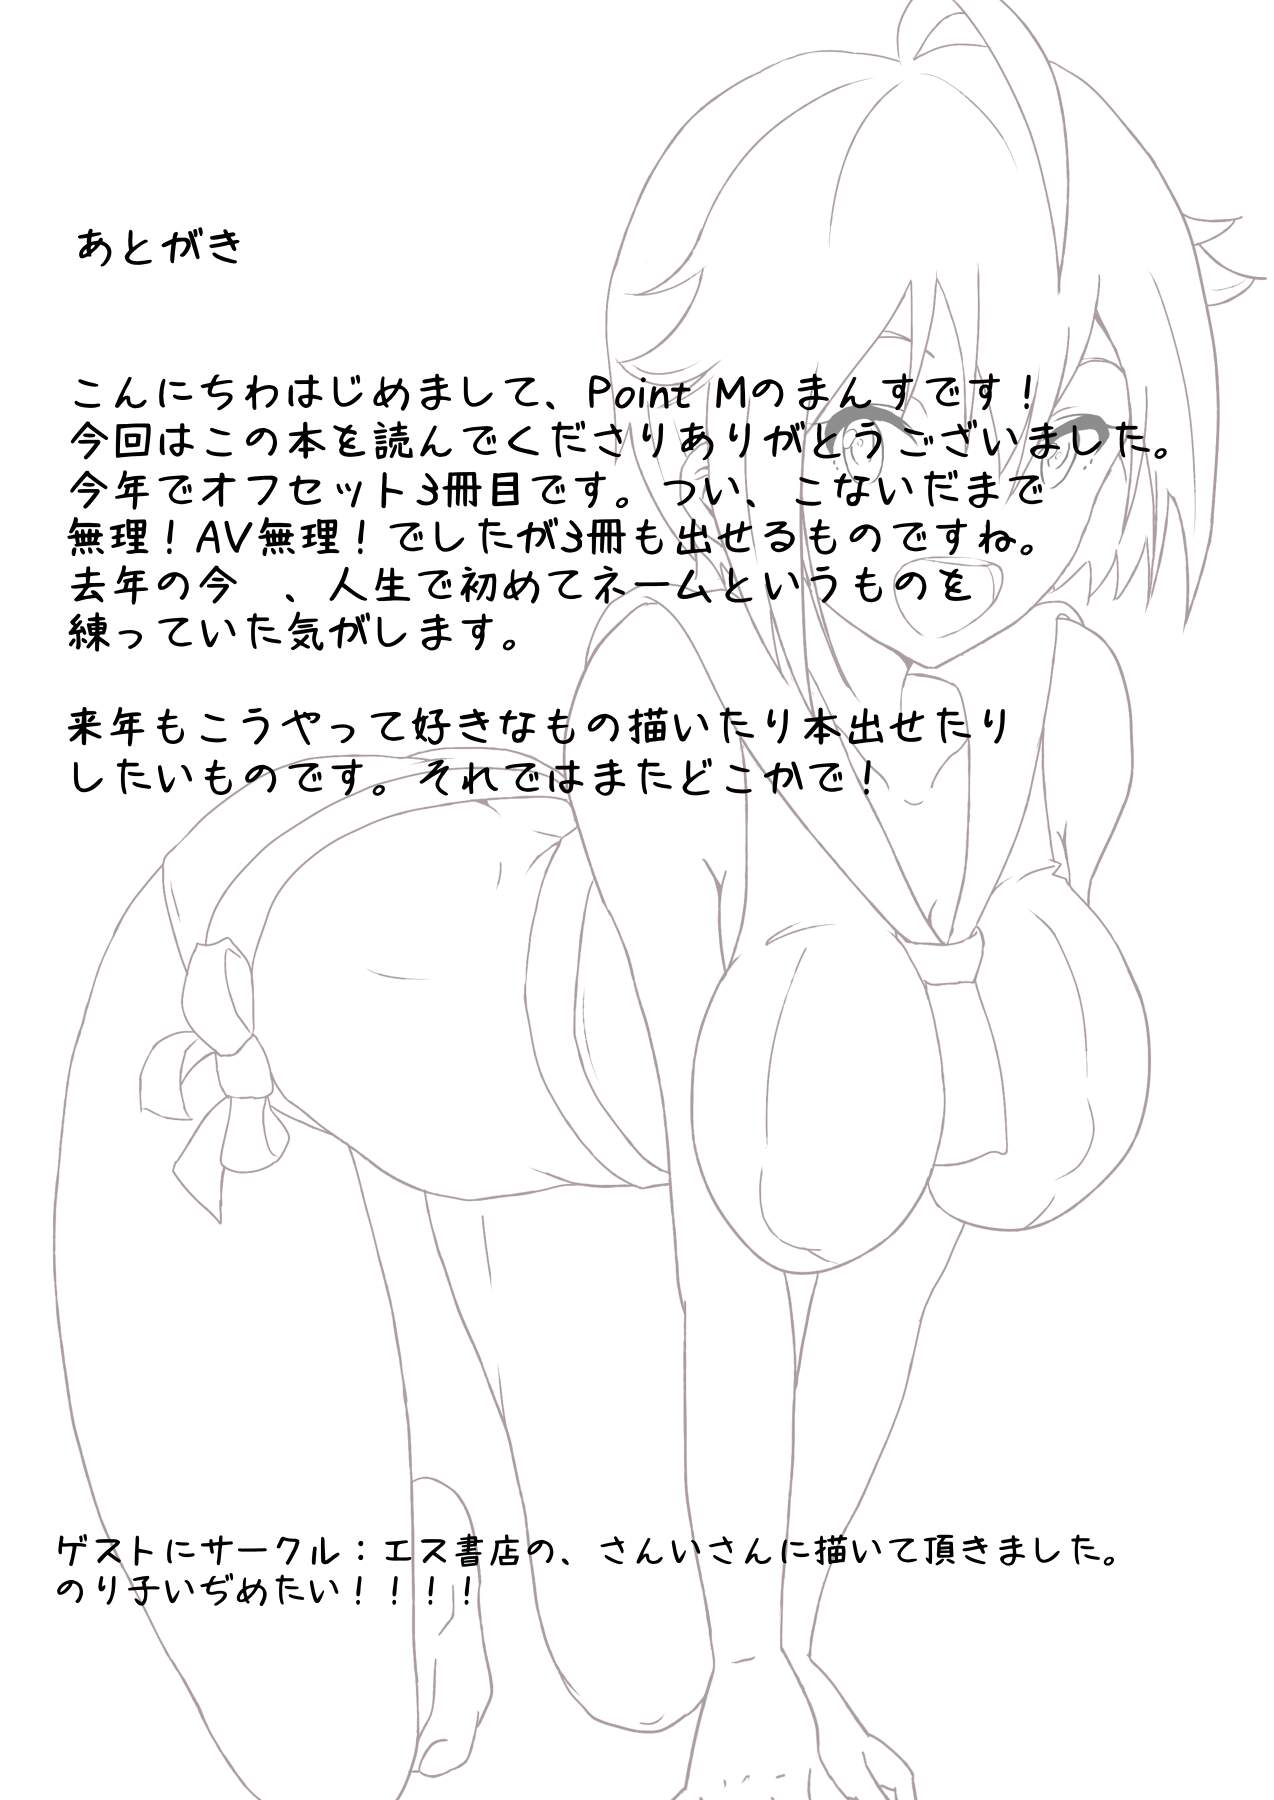 あとがき
こんにちわはじめまして、Point Mのまんすです！
今回はこの本を読んでくださりありがとうございました。
今年でオフセット3冊目です。つい、こないだまで
無理！AV無理！でしたが3冊も出せるものですね。
去年の今　、人生で初めてネームというものを
練っていた気がします。
来年もこうやって好きなもの描いたり本出せたり
したいものです。それではまたどこかで！
ゲストにサークル：エス書店の、さんいさんに描いて頂きました。
のり子いぢめたい！！！！